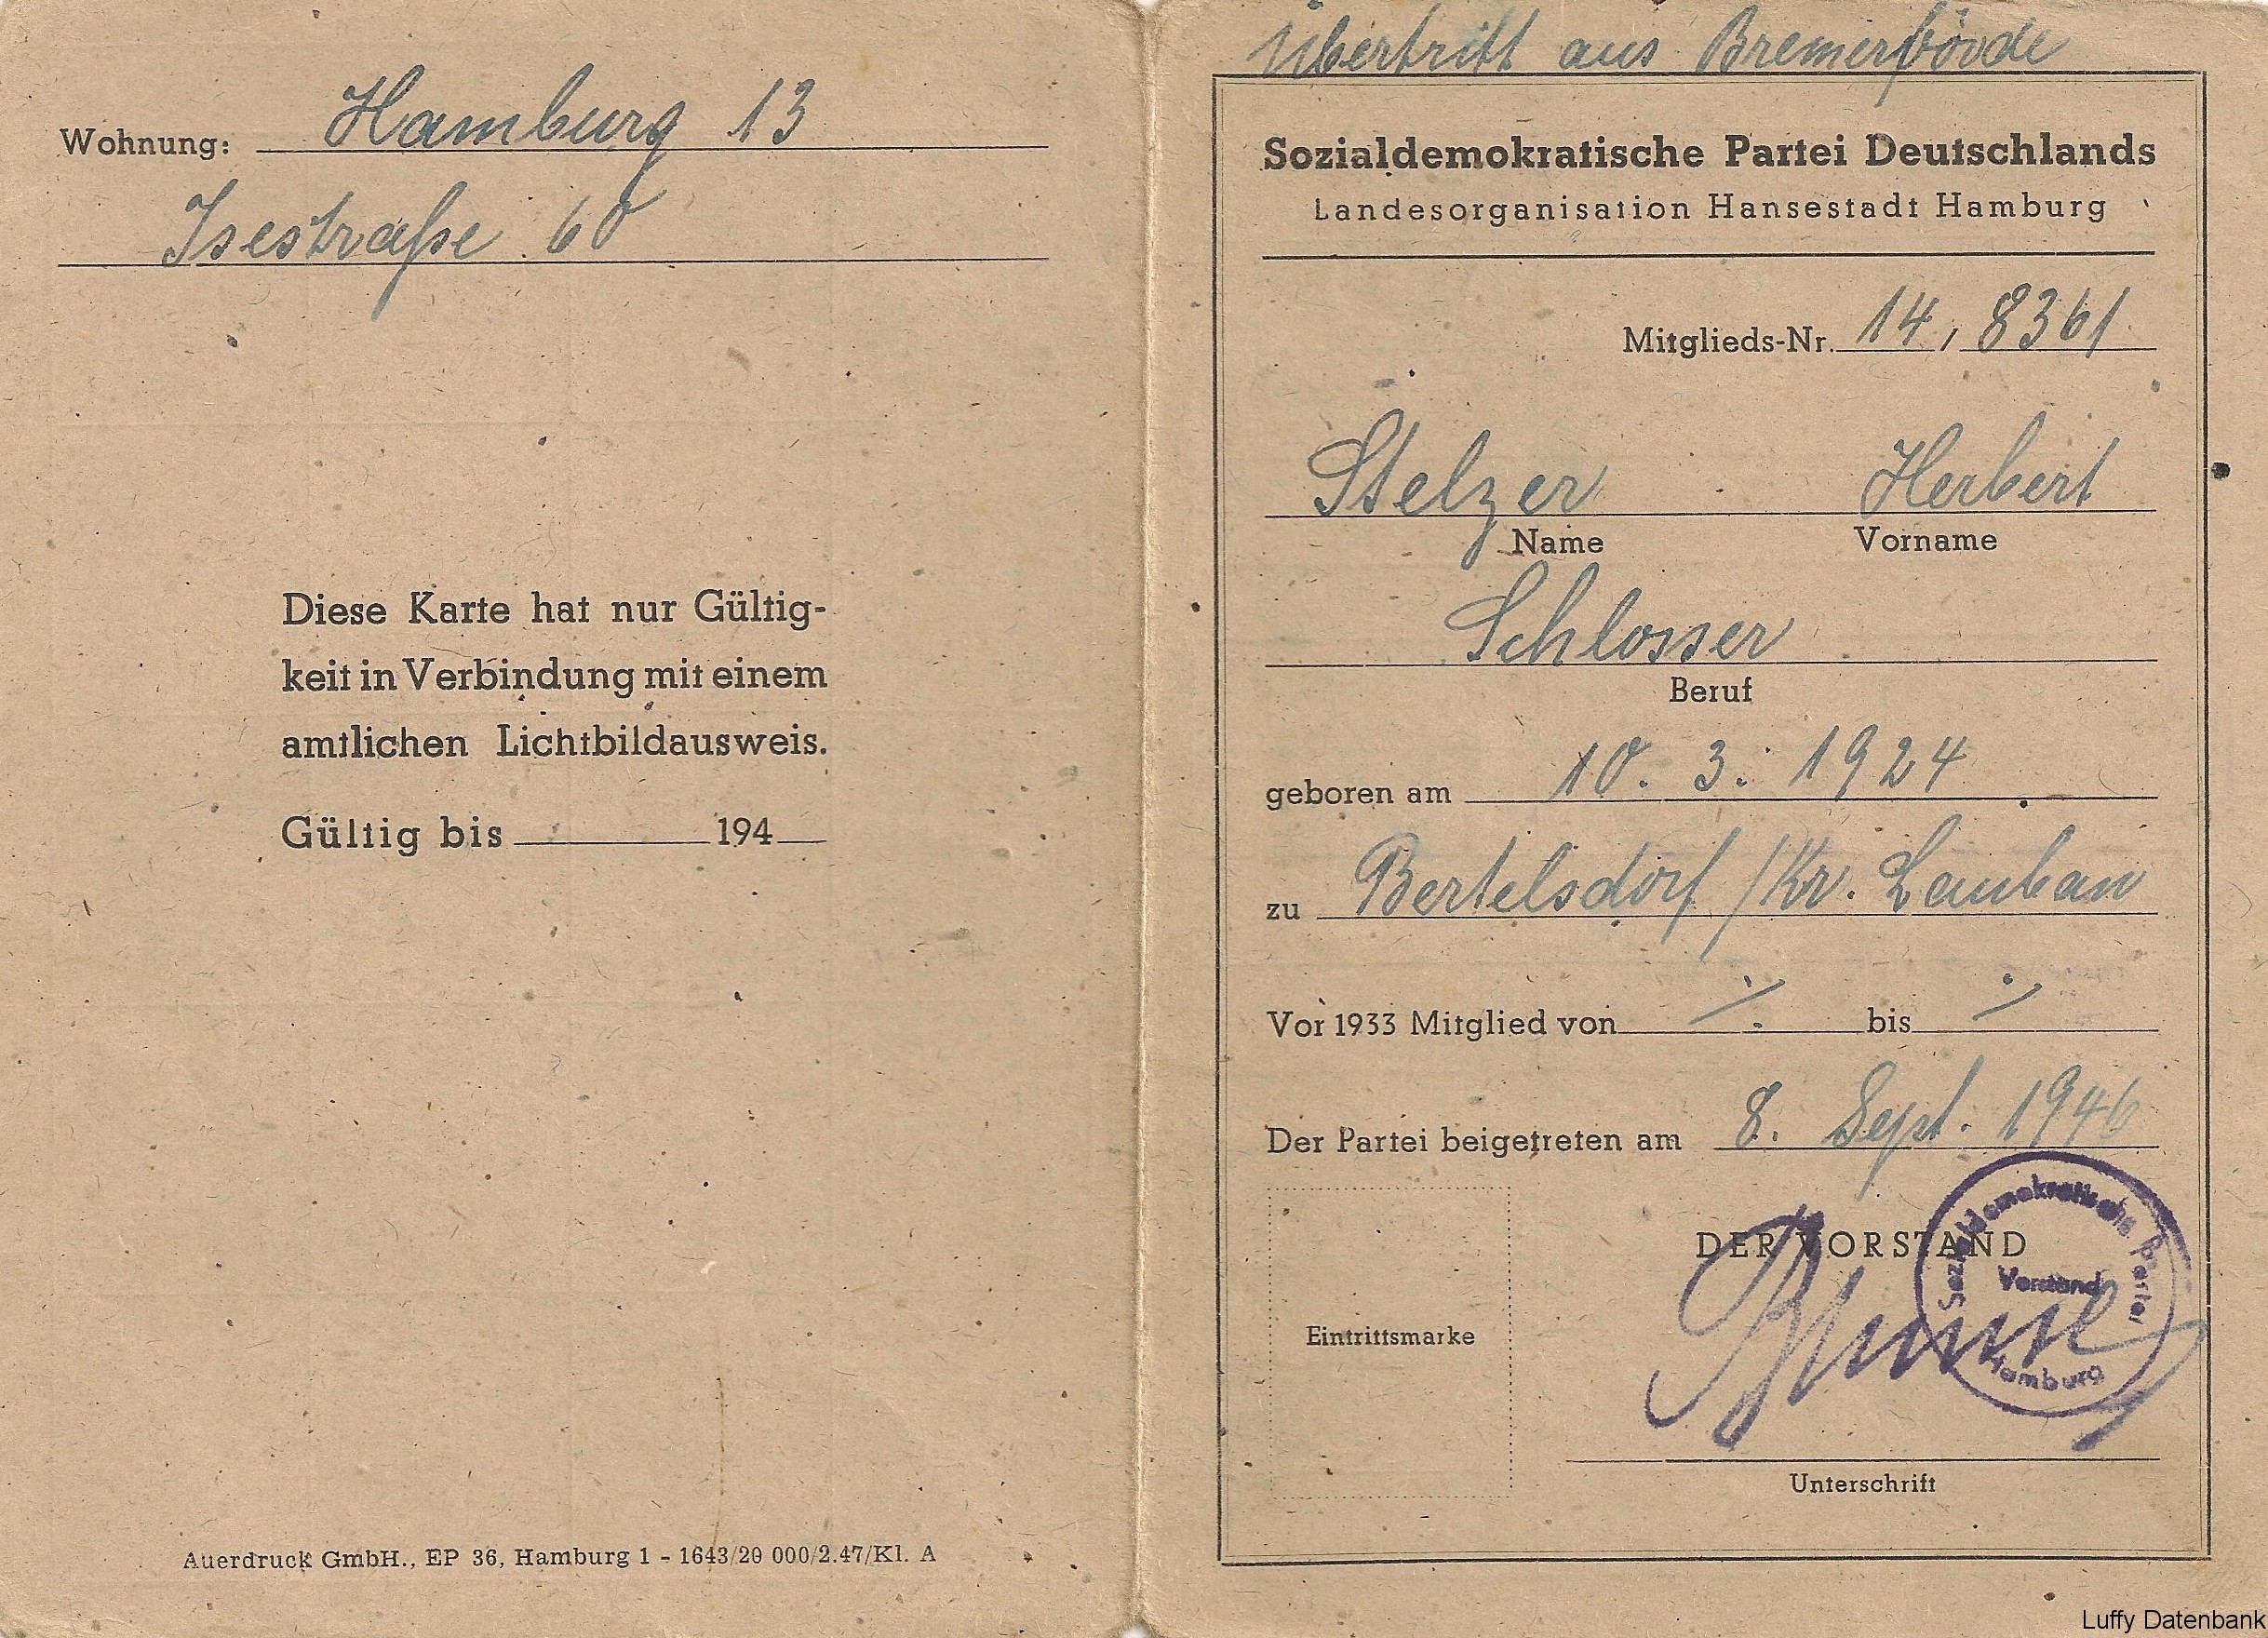 Wohnung: Hamburg 13
Isestraße 60
Diese Karte hat nur Gültig-
keit in Verbindung mit einem
amtlichen Lichtbildausweis.
Gültig bis 194
Auerdruck GmbH., EP 36, Hamburg 1 - 1643/20 000/2.47/Kl. A
Übertritt aus Bremervörde
Sozialdemokratische Partei Deutschlands
Landesorganisation Hansestadt Hamburg
Mitglieds-Nr. 14, 8361
Stelzer Herbert
Name Vorname
Schlosser
Beruf
geboren am 10. 3. 1924
zu Bertelsdorf /Kr. Lauban
Vor 1933 Mitglied von ./. bis ./.
Der Partei beigetreten am 8. Sept. 1946
Eintrittsmarke
DER VORSTAND
Sozialdemokratische Partei
Vorstand
Hamburg
Unterschrift
Luffy Datenbank